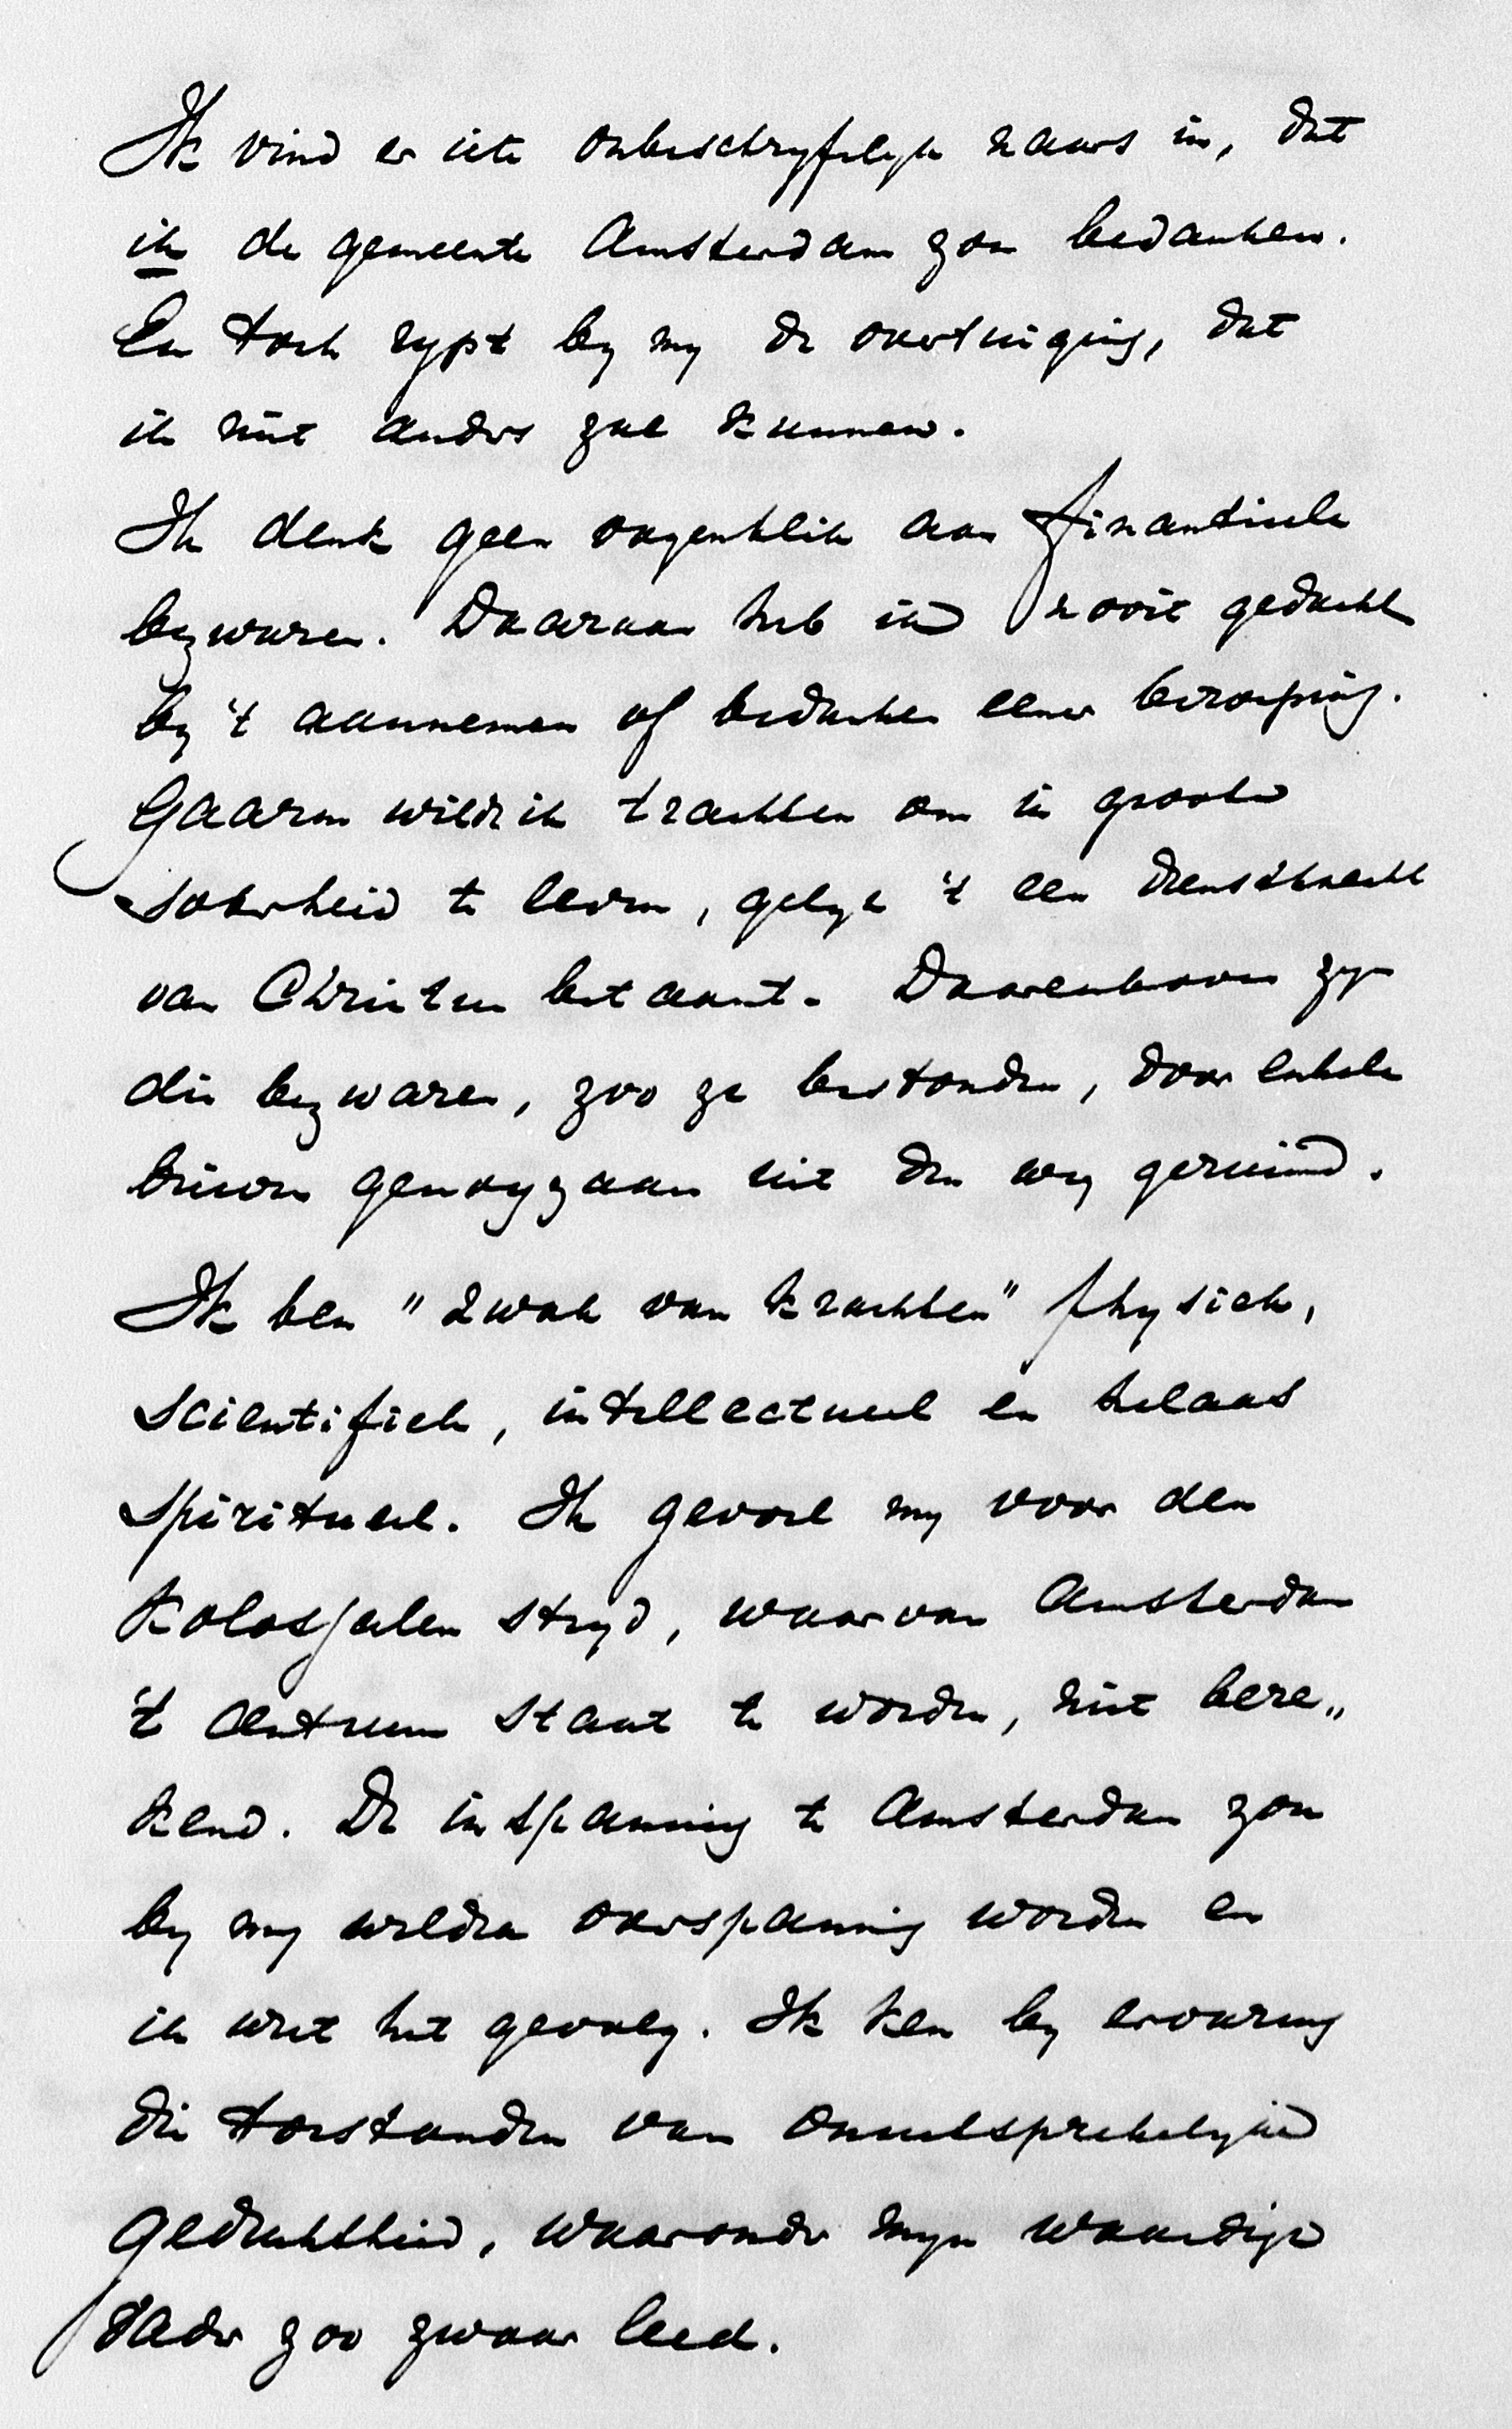 Ik vind er iets onbeschryfelyk naars in, dat
ik de gemeente Amsterdam zou bedanken.
En toch rypt by my de overtuiging, dat
ik niet anders zal kunnen.
Ik denk geen oogenblik aan financieele
bezwaren. Daaraan heb ik nooit gedacht
by 't aannemen of bedanken eener beroeping.
Gaarne wilde ik trachten om in groote
soberheid te leven, gelyk 't een dienstknecht
van Christus betaamt. Daarenboven zyn
die bezwaren, zoo ze bestonden, door enkele
brieven genoegzaam uit den weg geruimd.
Ik ben "zwak van krachten" physiek,
scientifiek, intellectueel en helaas
spiritueel. Ik gevoel my voor den
kolossalen stryd, waarvan Amsterdam
't centrum staat te worden, niet bere„
kend. De inspanning te Amsterdam zou
by my weldra overspanning worden en
ik weet het gevolg. Ik ken by ervaring
die toestanden van onuitsprekelyke
gedruktheid, waaronder myn waardige
vader zoo zwaar leed.